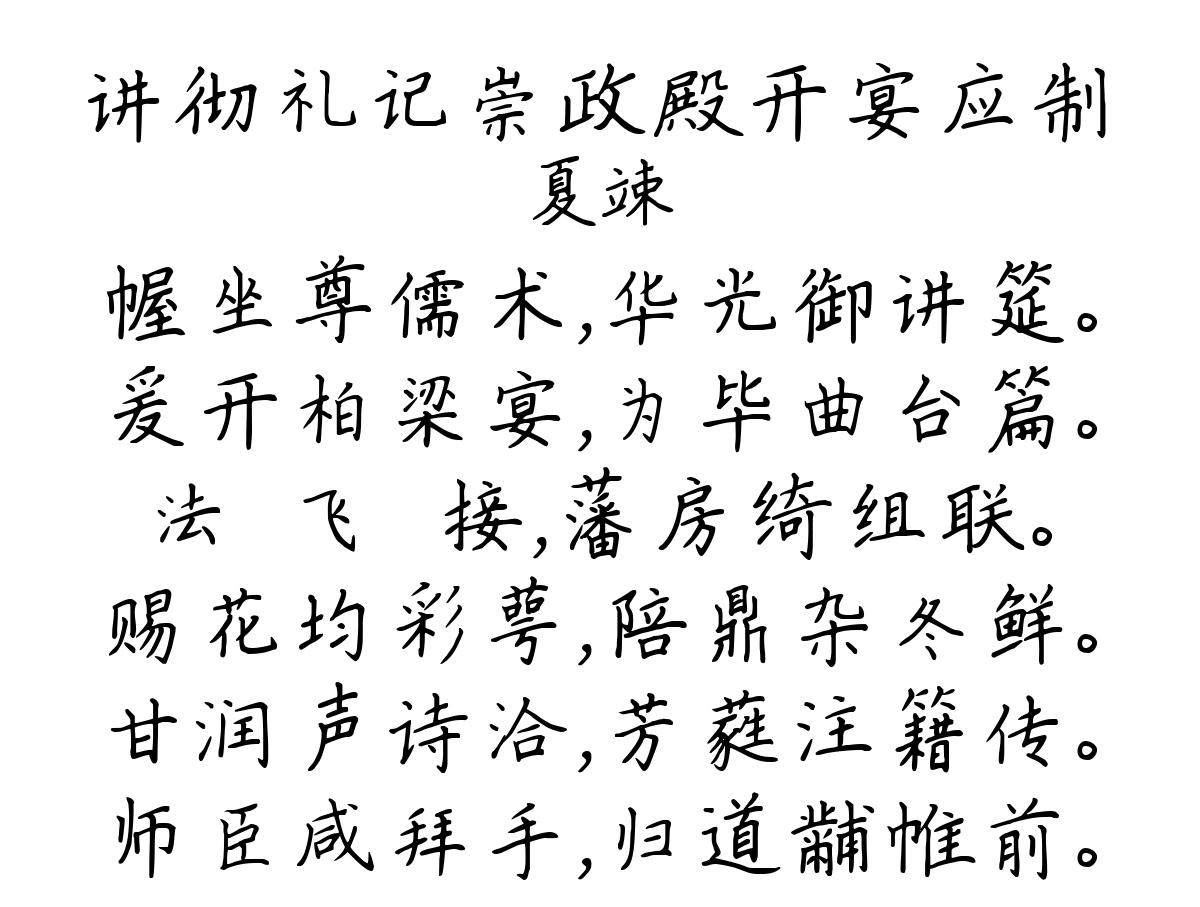 讲彻礼记崇政殿开宴应制
夏竦
幄坐尊儒术,华光御讲筵。
爰开柏梁宴,为毕曲台篇。
法 飞 接,藩房绮组联。
赐花均彩萼,陪鼎杂冬鲜。
甘润声诗洽,芳蕤注籍传。
师臣咸拜手,归道黼帷前。